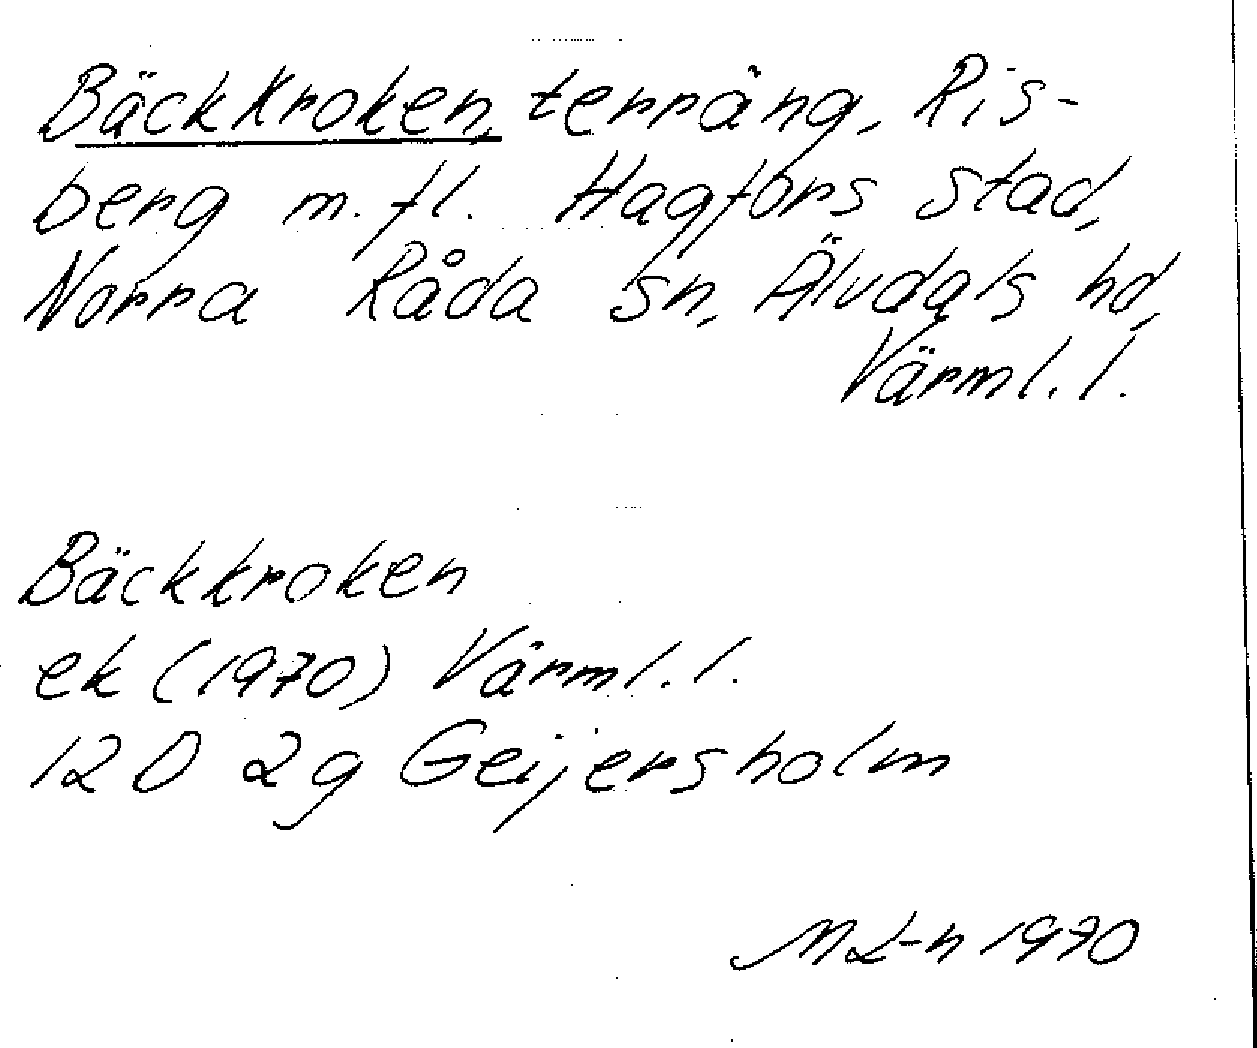 Bäckkroken, terräng, Ris-
berg m. fl. Hagfors stad,
Norra Råda sn, Älvdals hd,
Värml. l.
Bäckkroken
ek (1970) Värml. l.
12 D 2g Geijersholm
M L-n 1970